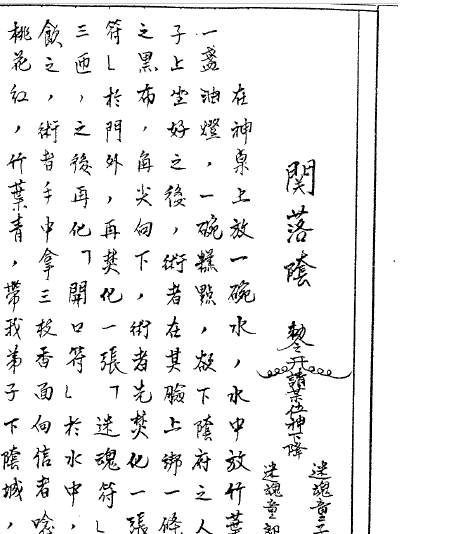 関落陰
勅令開請某位神下降
迷魂童子
迷魂童郎
在神桌上放一碗水,水中放竹葉
一盞油燈,一碗糕點,欲下陰府之人
子上坐好之後,術者在其臉上綁一條
之黑布,角尖向下,術者先焚化一張
符」於門外,再焚化一張「迷魂符」
三西,之後再化「開口符」於水中,
飲之,術者手中拿三枝香面向信者唸
桃花紅,竹葉青,帶我弟子下陰城,